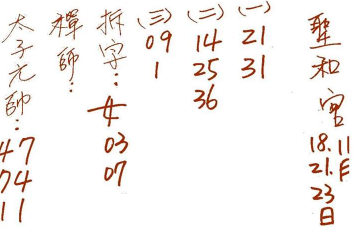 聖和宮 18.21.23 11月日
(一) 21 31
(二) 14 25 36
(三) 09 1
拆字：女 03 07
禪師：
太子元帥：47 74 11